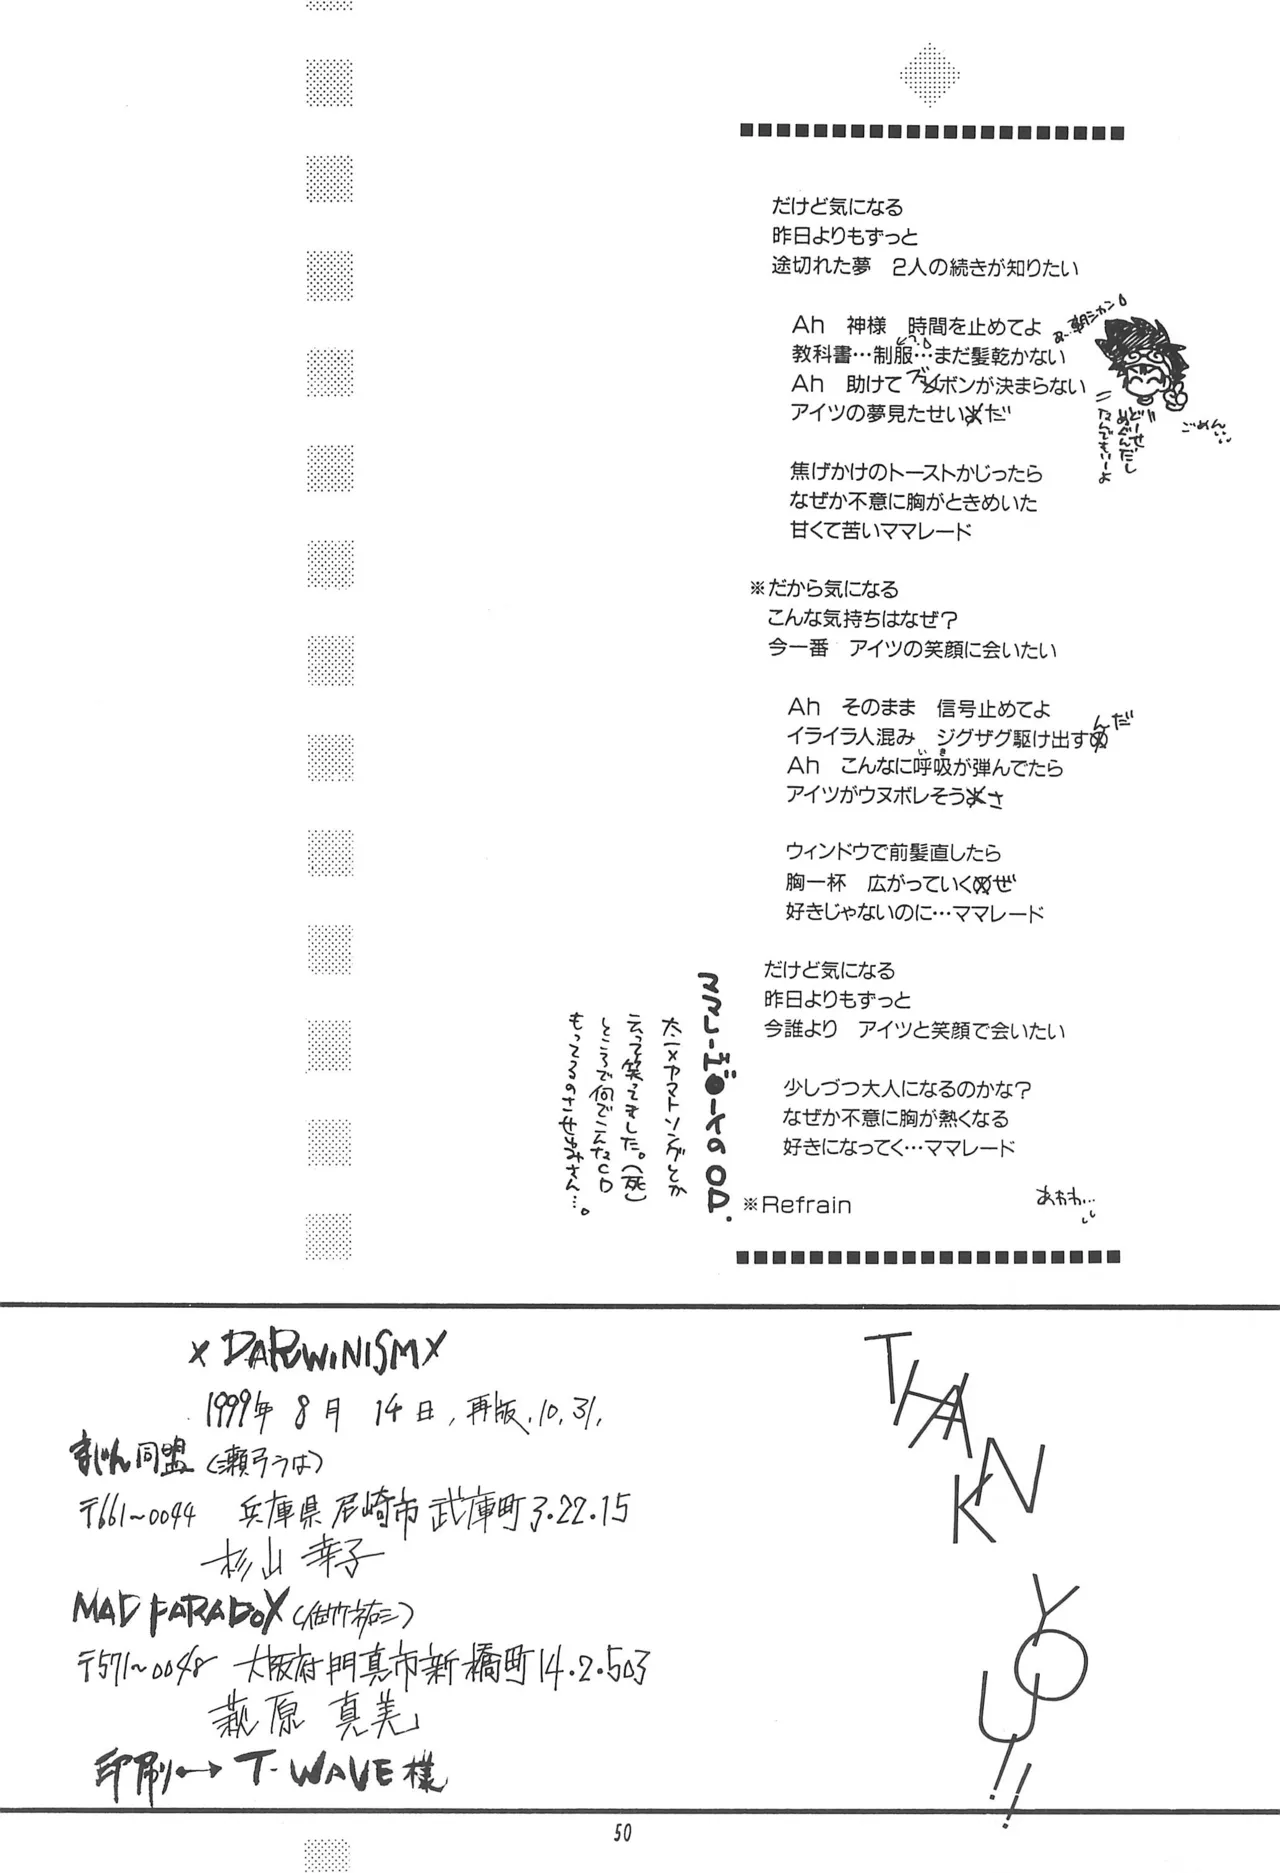 だけど気になる
昨日よりもずっと
途切れた夢　2人の続きが知りたい
Ah　神様　時間を止めてよ
教科書…制服…まだ髪乾かない
Ah　助けて　ブンボンが決まらない
アイツの夢見たせいだ
ごめん
どーせ
めぐんだし
なんでもいーよ
焦げかけのトーストかじったら
なぜか不意に胸がときめいた
甘くて苦いママレード
※だから気になる
こんな気持ちはなぜ？
今一番　アイツの笑顔に会いたい
Ah　そのまま　信号止めてよ
イライラ人混み　ジグザグ駆け出すんだ
Ah　こんなに呼吸が弾んでたら
いき
アイツがウヌボレそうさ
ウィンドウで前髪直したら
胸一杯　広がっていくぜ
好きじゃないのに…ママレード
だけど気になる
昨日よりもずっと
今誰より　アイツと笑顔で会いたい
少しづつ大人になるのかな？
なぜか不意に胸が熱くなる
好きになってく…ママレード
※Refrain
あわわ…
ママレード●ーイのOP.
太一×ヤマトソングとか
云って笑ってました。(死)
ところで何でこんなCD
もってるのさ
x DARWINISM x
1999年 8月 14日, 再版, 10, 31,
まじん同盟 (瀬弓うは)
〒661~0044 兵庫県尼崎市武庫町3.22.15
杉山 幸子
MAD PARADOX (佐竹祐三)
〒571~0048 大阪府門真市新橋町14.2.503
萩原 真美
印刷 → T-WAVE様
THANK
YOU!!
50